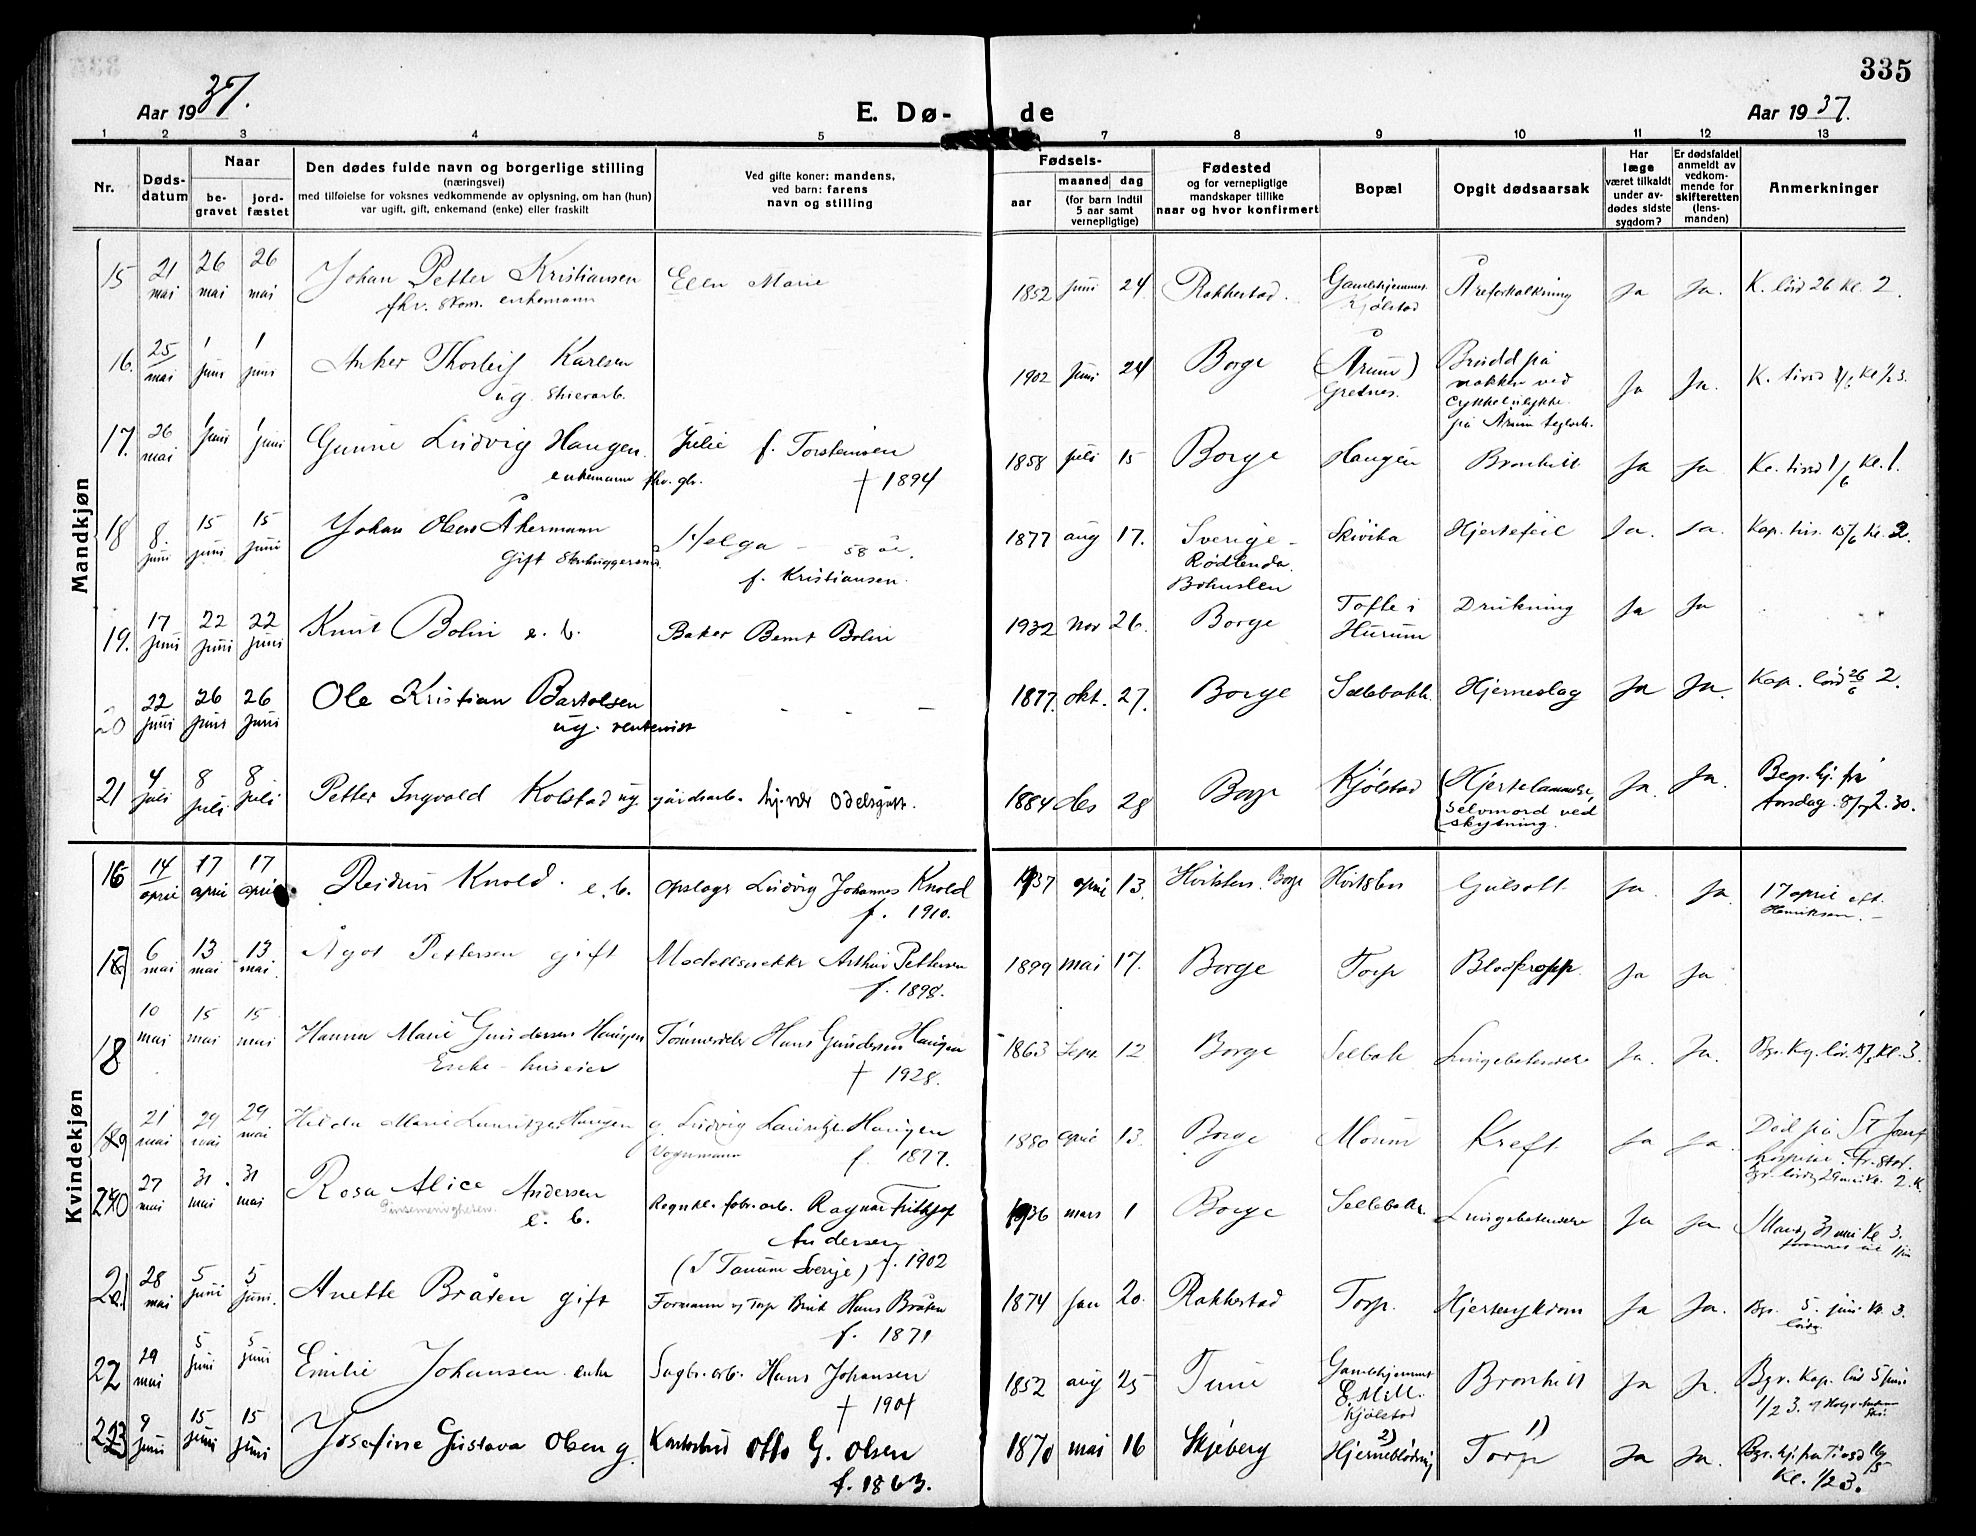 335
Aar 1937.
E. Dø-
de
Aar 1937.
1 2 3 4 5 7 8 9 10 11 12 13
Nr.
Døds-
datum
Naar
be-
gravet
jord-
fæstet
Den dødes fulde navn og borgerlige stilling
(næringsvei)
med tilføielse for voksnes vedkommende av oplysning, om han (hun)
var ugift, gift, enkemand (enke) eller fraskilt
Ved gifte koner: mandens,
ved barn: farens
navn og stilling
Fødsels-
aar
maaned dag
(for barn indtil
5 aar samt
vernepligtige)
Fødested
og for vernepligtige
mandskaper tillike
naar og hvor konfirmert
Bopæl
Opgit dødsaarsak
Har
læge
været tilkaldt
under av-
dødes sidste
sygdom?
Er dødsfaldet
anmeldt av
vedkom-
mende for
skifteretten
(lens-
manden)
Anmerkninger
Mandkjøn
15 21 mai 26 mai 26 mai Johan Petter Kristiansen Ellen Marie 1852 juni 24 Rakkestad. Gamlehjemmet Åreforkalkning Ja Ja. K. lörd 26 kl. 2.
fhv. skom. enkemann Kjølstad
16. 25 mai 1 juni 1 juni Anker Thorleif Karlsen 1902 juni 24 Borge (Årum) Brudd på Ja Ja. K. tirsd 1/6 kl 1/2 3.
ug. Grednes. nakken ved
cykkelulykke
på Årum
17. 26 mai 1 juni 1 juni Gunne Ludvig Haugen Julie f. Torsteinsen 1858 juli 15 Borge Haugen Bronkitt Ja Ja Ka. tirsd 1/6 kl. 1.
enkemann fhv. gbr. † 1894
18 8. juni 15 juni 15 juni Johan Olsen Åkermann Helga - 58 år. 1877 aug 17. Sverige - Skivika Hjertefeil Ja. Ja. Kap. tirs. 15/6 kl. 2.
Gift f. Kristiansen. Rødlenda.
Bohuslen
19. 17 juni 22 juni 22 juni Knut Bolin e. b. Baker Bernt Bolin 1932 nov 26. Borge Tofte i Drukning Ja Ja
Hurum
20 22 juni 26 juni 26 juni Ole Kristian Bartolsen - - - 1877. okt. 27. Borge Sellebakk. Hjerneslag Ja Ja. Kap. lörd 26/6 2.
ug. rentenist
21 4 juli 8 juli 8 juli Petter Ingvald Kolstad ug. gårdsarb. 1884 des 28 Borge Kjølstad (Hjertelammelse, Ja. Ja. Begr. hj. fra
selvmord ved torsdag. 8/7 2.30.
skytning.
Kvindekjøn
16 14 april 17 april 17 april Reidun Knold. e. b. opslags Ludvig Johannes Knold 1937 april 13. Borge Gulsott Ja. Ja 17 april eft.
f. 1910. Henriksen. -
17 6 mai 13 mai 13 mai. Ågot Pettersen gift Modellsnekker Arthur Pettersen 1899 mai 17. Borge Torp Blodpropp. Ja Ja
f. 1898.
18 10 mai 15 mai 15 mai Hanna Marie Gundersen Haugen Hans Gundersen Haugen 1863 Sept. 12 Borge Selbak Lungebetendelse Ja. Ja.
Enke - huseier † 1928.
19 21 mai 29 mai 29 mai Hilda Marie Lauritzen Haugen g. Ludvig Lauritzen Haugen 1880 april 13. Borge Moum Kreft. Ja Ja. Død på St Josef
Vognmann f. 1877. hospital. Fr.stad.
20 27 mai 31 mai 31 mai Rosa Alice Andersen Ragnar Frithjof 1936 mars 1 Borge Sellebakk. Lungebetendelse Ja Ja Mand. 31 mai kl 3.
Pinsemenigheten. e. b. Andersen
(I Tanum Sverige) f. 1902
21 28 mai 5 juni 5 juni. Anette Bråten gift Formann Hans Bråten 1874 Jan 20. Rakkestad Torp. Hjertesykdom Ja Ja. Bgr. 5. juni kl. 3.
f. 1871 lördg
22 29 mai 5 juni 5 juni Emilie Johansen enke Sagbr.arb. Hans Johansen 1852 aug 25 Tune Gamlehjemmet Bronkitt Ja Ja. Bgr. Kap. lörd 5 juni
† 1901 Kjølstad 1/2 3.
23 9 juni 15 juni 15 juni Josefine Gustava Olsen g. Otto G. Olsen 1870 mai 16 Skjeberg 2) Hjerneblødning 1) Torp Ja Ja. Bgr. hj. fra Tirsd
f. 1863. Kl. 1/2 3.